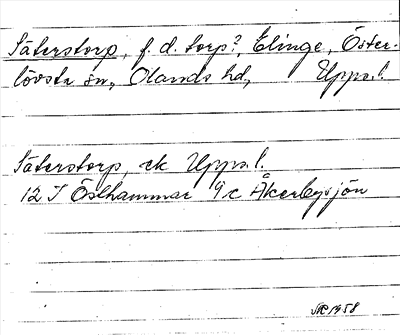 Säterstorp, f. d. torp?, Elinge, Öster-
lövsta sn, Olands hd, Upps.l.
Säterstorp, ek Upps.l.
12 I Östhammar 9 c Åkerbysjön
1958